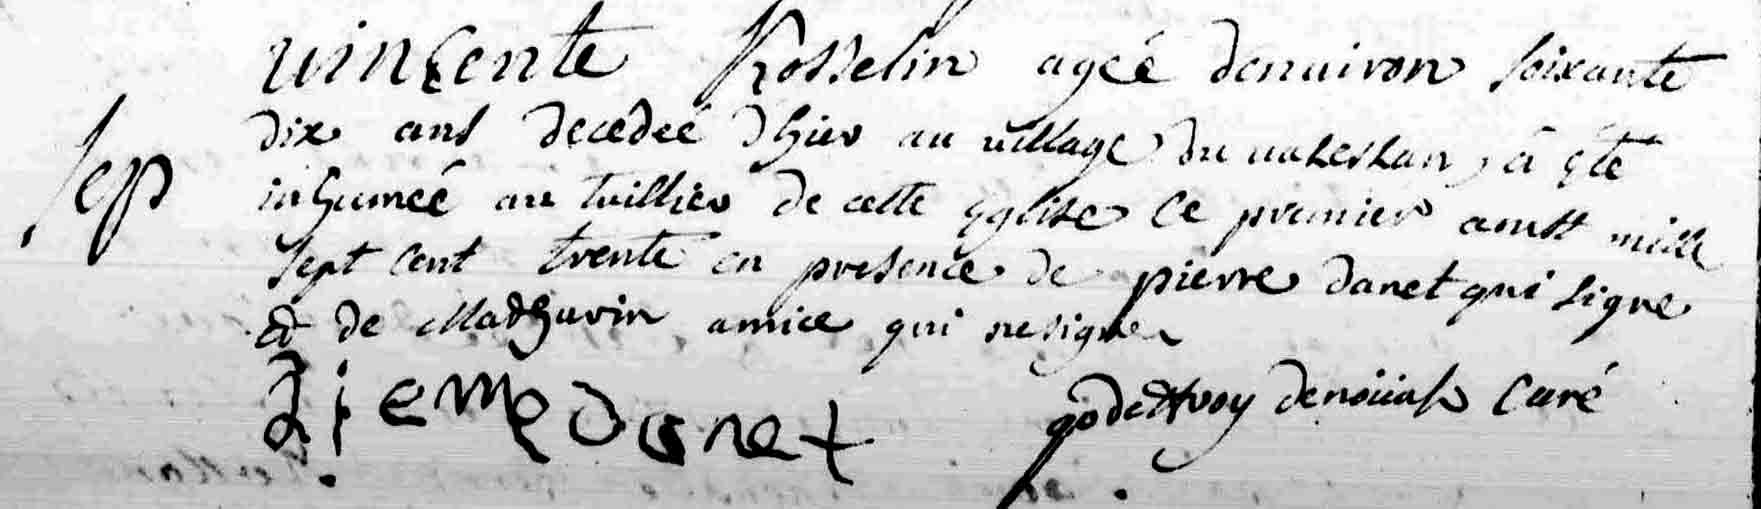 vincente Rosselin ageé denuiron soixante
dix ans decedeé dhier au uillage du
sep
inhumeé au tuillier de cette eglise ce premier aoust mille
sept cent trente en presence de pierre danet qui signe
et de Mathurin amice qui ne signe
pierre danet
godeffroy curé